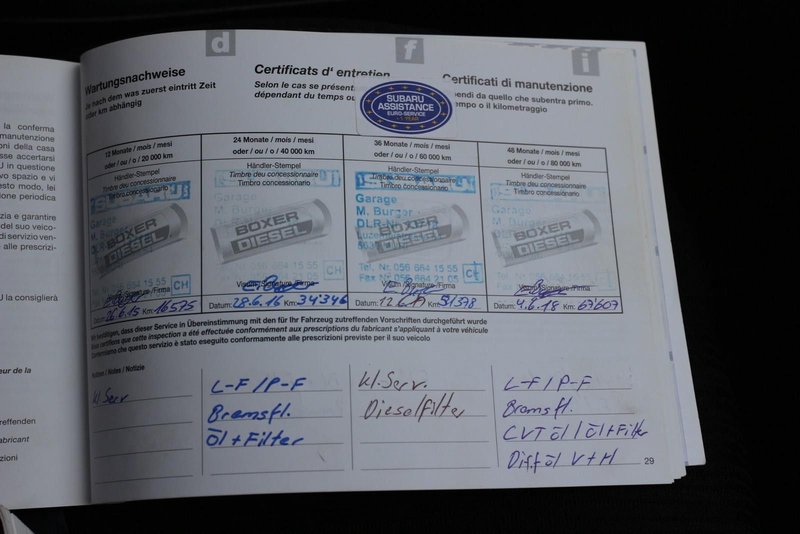 d
f
i
Wartungsnachweise
Je nach dem was zuerst eintritt Zeit
oder km abhängig
Certificats d' entretien
Selon le cas se présent
dépendant du temps ou
Certificati di manutenzione
pendi da quello che subentra primo.
empo o il kilometraggio
SUBARU
ASSISTANCE
EURO-SERVICE
la conferma
manutenzione
oni della casa
sse accertarsi
U in questione
vo spazio e vi
esto modo, lei
zione periodica
zia e garantire
del suo veico-
di servizio ven-
alle prescrizi-
U la consiglierà
eur de la
treffenden
fabricant
zioni
12 Monate / mois / mesi
oder / ou / o / 20 000 km
24 Monate / mois / mesi
oder / ou / o / 40 000 km
36 Monate / mois / mesi
oder / ou / o / 60 000 km
48 Monate / mois / mesi
oder / ou / o / 80 000 km
Händler-Stempel
Timbre deu concessionnaire
Timbro concessionario
Garage
M. Burger
BOXER
DIESEL
056 664 15 55
CH
Datum: 26.6.15 Km: 16575
Händler-Stempel
Timbre deu concessionnaire
Timbro concessionario
Garage
M. Burger
BOXER
DIESEL
Tel. Nr. 056 664 15 55
CH
Visum/Signature/Firma
Datum: 28.6.16 Km: 34'346
Händler-Stempel
Timbre deu concessionnaire
Timbro concessionario
Garage
M. Burger
BOXER
DIESEL
Tel. Nr. 056 664 15 55
Fax Nr. 056 664 21 05
CH
Datum: 12.6.17 Km: 51378
Händler-Stempel
Timbre deu concessionnaire
Timbro concessionario
Garage
BOXER
DIESEL
Tel. Nr. 056 664 15 55
CH
Visum/Signature/Firma
Datum: 4.6.18 Km: 67607
Wir bestätigen, dass dieser Service in Übereinstimmung mit den für Ihr Fahrzeug zutreffenden Vorschriften durchgeführt wurde
Nous certifions que cette inspection a été effectuée conformément aux prescriptions du fabricant s'appliquant à votre véhicule
Confermiamo che questo servizio è stato eseguito conformamente alle prescrizioni previste per il suo veicolo
Notizen / Notes / Notizie
kl. Serv
L-F / P-F
Bremsfl.
Öl + Filter
kl. Serv.
Dieselfilter
L-F / P-F
Bremsfl.
CVT öl / öl + Filter
Diff öl V + H
29